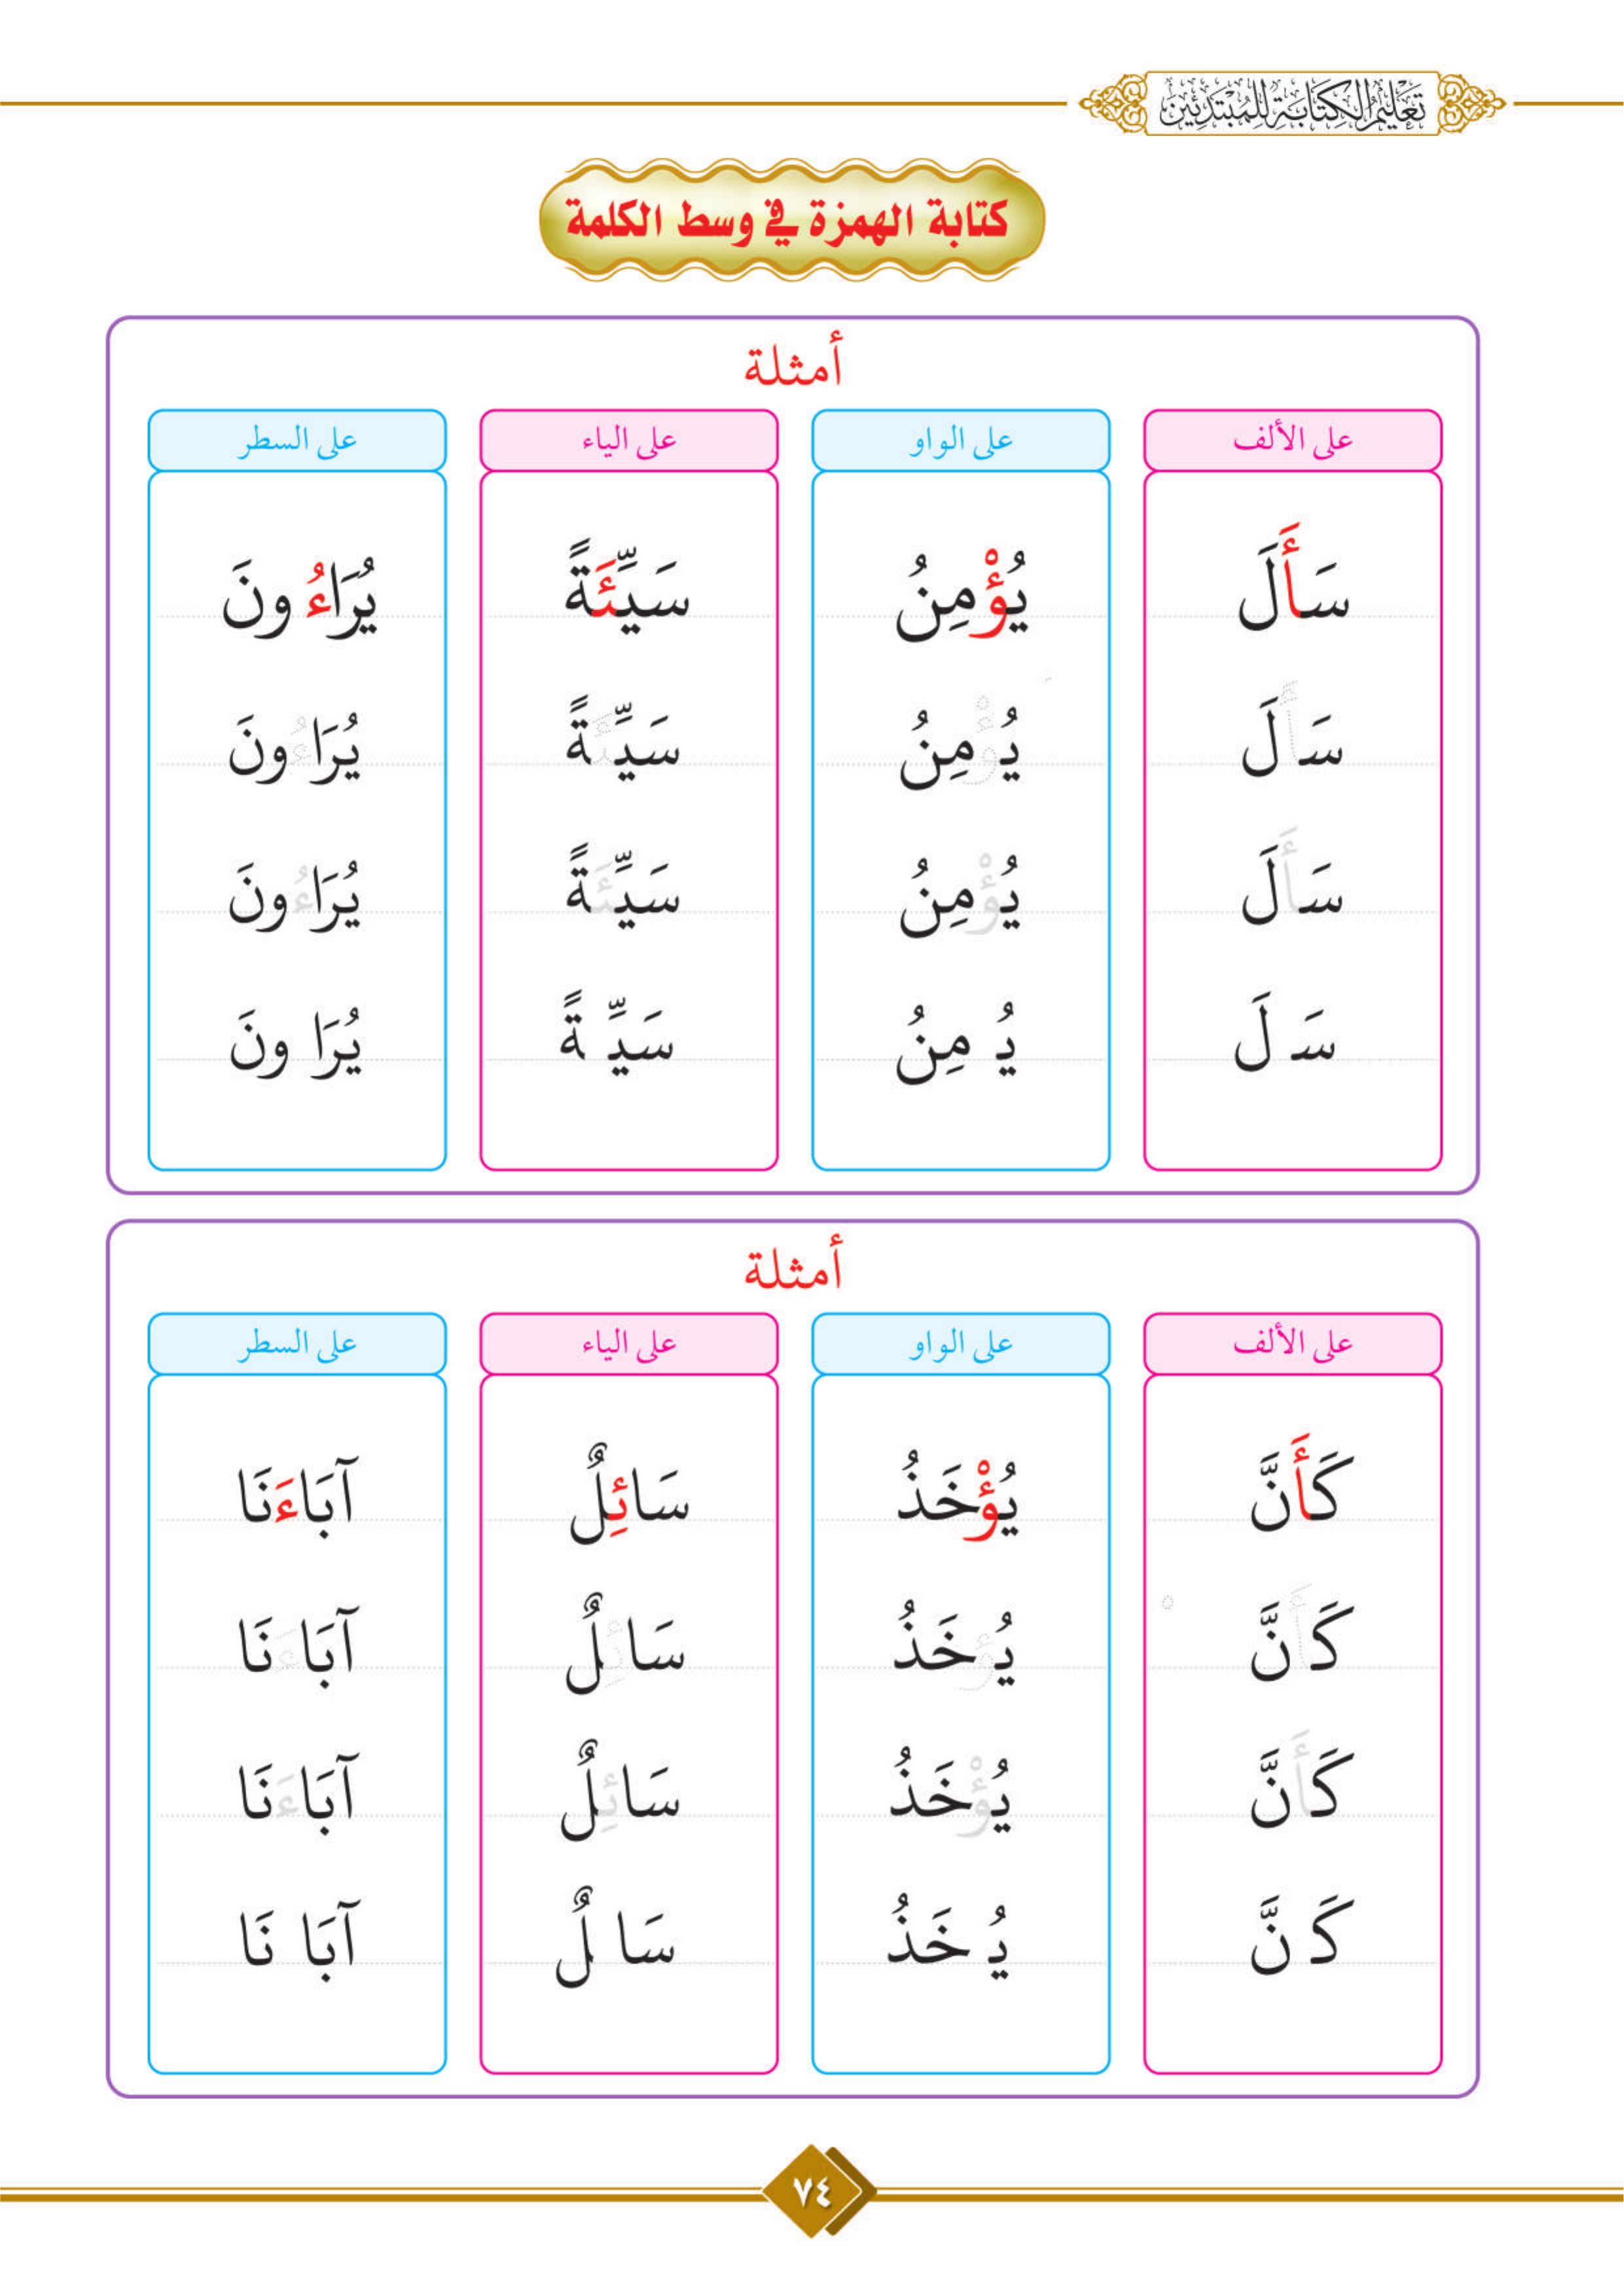 تَعْلِيمُ الْكِتَابَةِ لِلْمُبْتَدِئِينَ
كتابة الهمزة في وسط الكلمة
أمثلة
على الألف على الواو على الياء على السطر
سَأَلَ يُؤْمِنُ سَيِّئَةً يُرَاءُونَ
سَأَلَ يُؤْمِنُ سَيِّئَةً يُرَاءُونَ
سَأَلَ يُؤْمِنُ سَيِّئَةً يُرَاءُونَ
سَـ لَ يُـ مِنُ سَيِّـ ةً يُرَا ونَ
أمثلة
على الألف على الواو على الياء على السطر
كَأَنَّ يُؤْخَذُ سَائِلٌ آبَاءَنَا
كَأَنَّ يُؤخَذُ سَائِلٌ آبَاءَنَا
كَأَنَّ يُؤْخَذُ سَائِلٌ آبَاءَنَا
كَـ نَّ يُـ خَذُ سَا ـلٌ آبَا نَا
٧٤